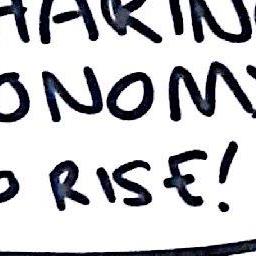 HARING
ONOMY
O RISE!